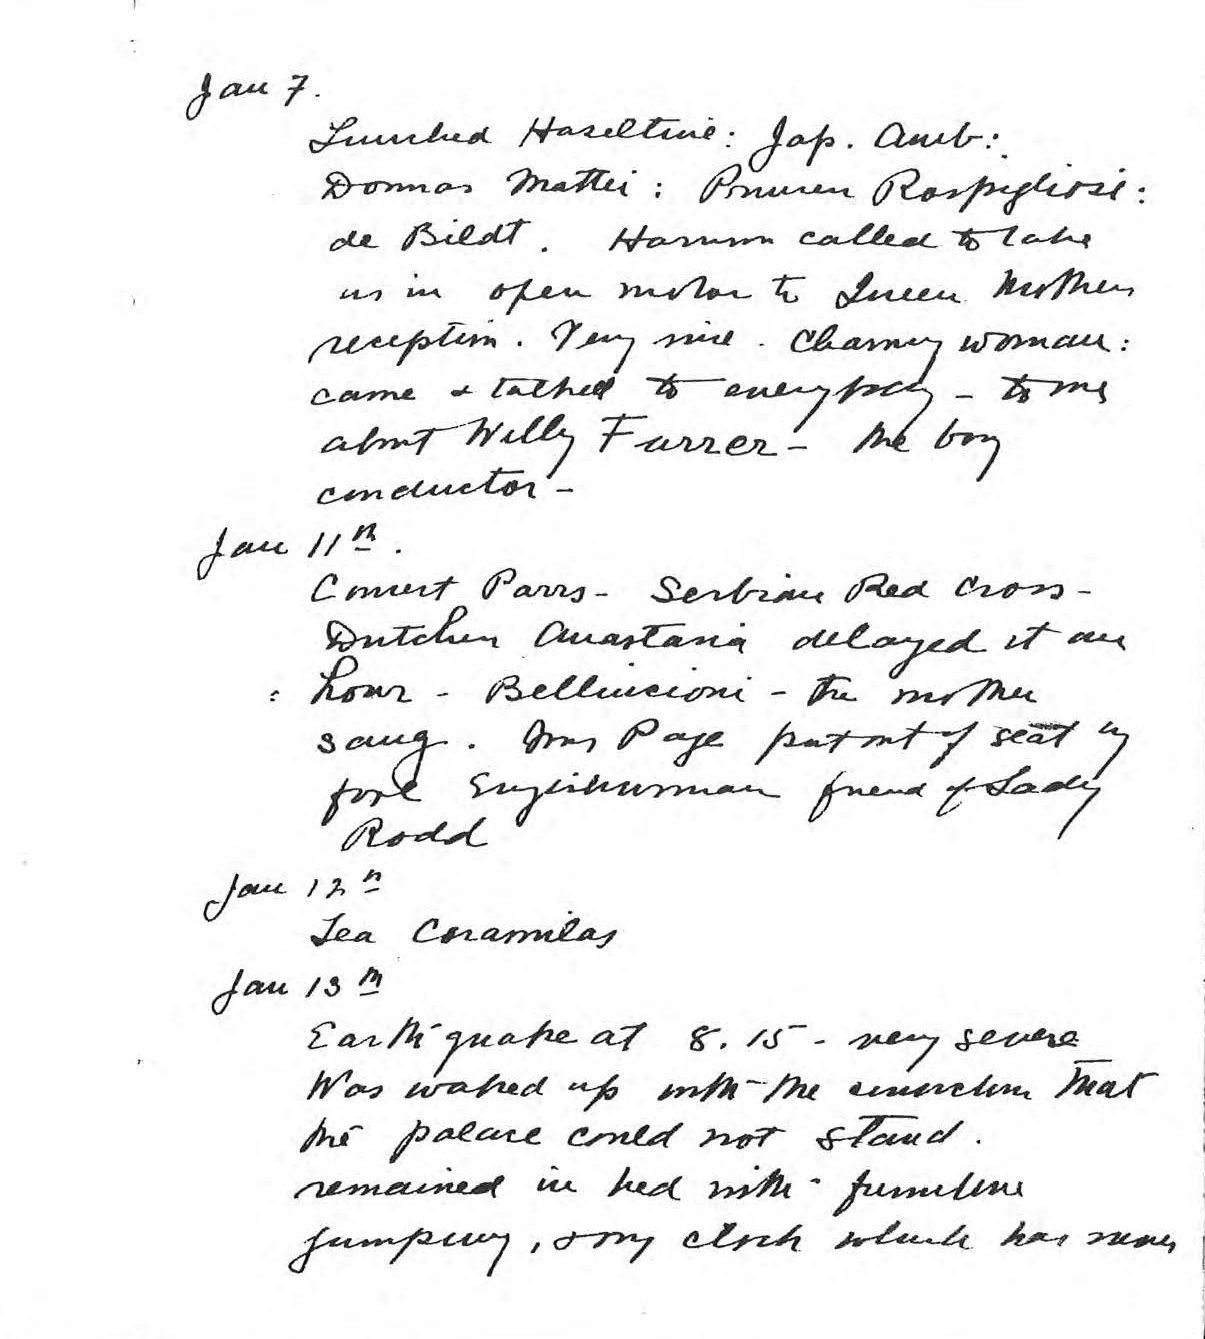 Jan 7.
Lunched Haseltine: Jap. Amb:
Donnas Mattei: Princess Rospigliosi:
de Bildt. Harrison called to take
us in open motor to Queen Mothers
reception. Very nice. Charming woman:
came & talked to everybody - to me
about Willy Farrer - the boy
conductor -
Jan 11th.
Concert Parrs - Serbian Red Cross -
Dutchess Anastasia delayed it an
hour - Bellincioni - the mother
sang. Mrs Page put out of seat by
fool Englishwoman friend of Lady
Rodd
Jan 12th
Tea Coramilas
Jan 13th
Earthquake at 8.15 - very severe
Was waked up with the conviction that
the palace could not stand.
remained in bed with furniture
jumping, & my clock which has never